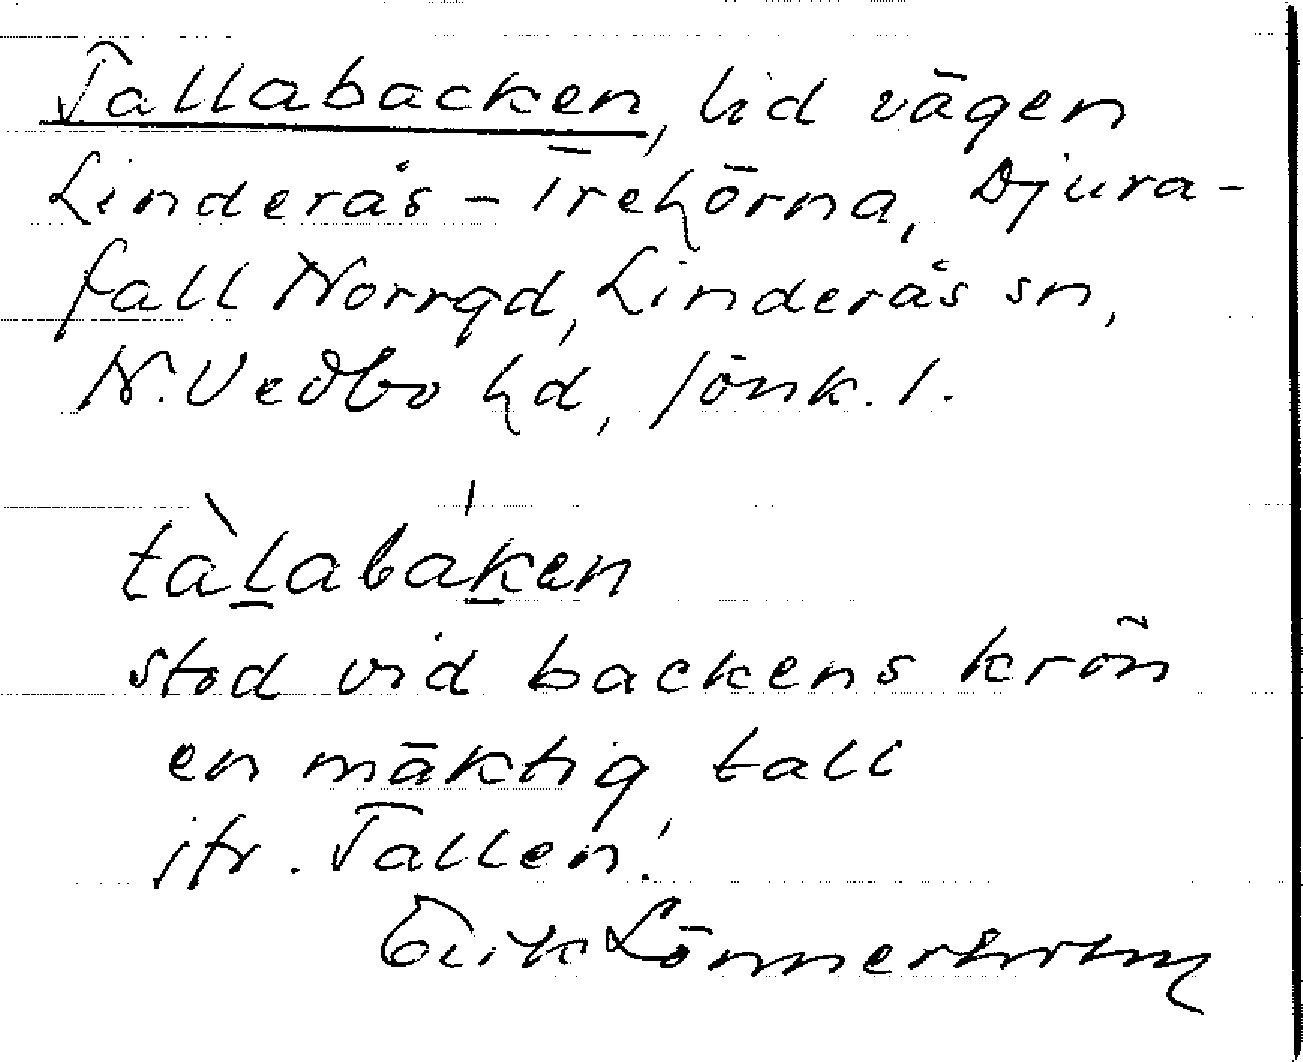 Tallabacken, lid vägen
Linderås - Trehörna, Djura-
fall Norrgd, Linderås sn,
N. Vedbo hd, Jönk. l.
tàlabáken
stod vid backens krön
en mäktig tall
jfr. Tallen!
Erik Lönnerholm